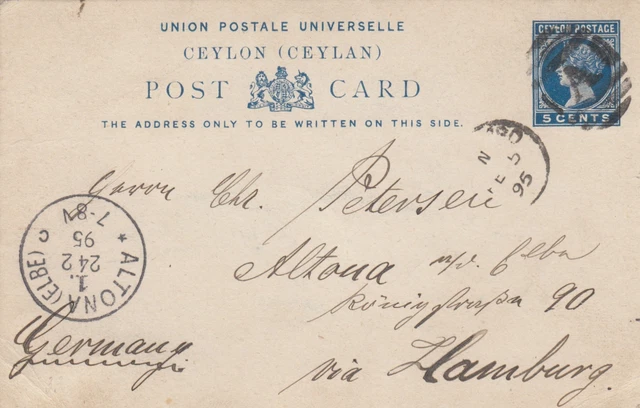 UNION POSTALE UNIVERSELLE
CEYLON (CEYLAN)
POST CARD
THE ADDRESS ONLY TO BE WRITTEN ON THIS SIDE.
CEYLON POSTAGE
5 CENTS
95
Herrn Chr. Petersen
Altona a/d. Elbe
Königstraße 90
via Hamburg.
Germany
ALTONA (ELBE) * c
1.
24 2
95
7-8N